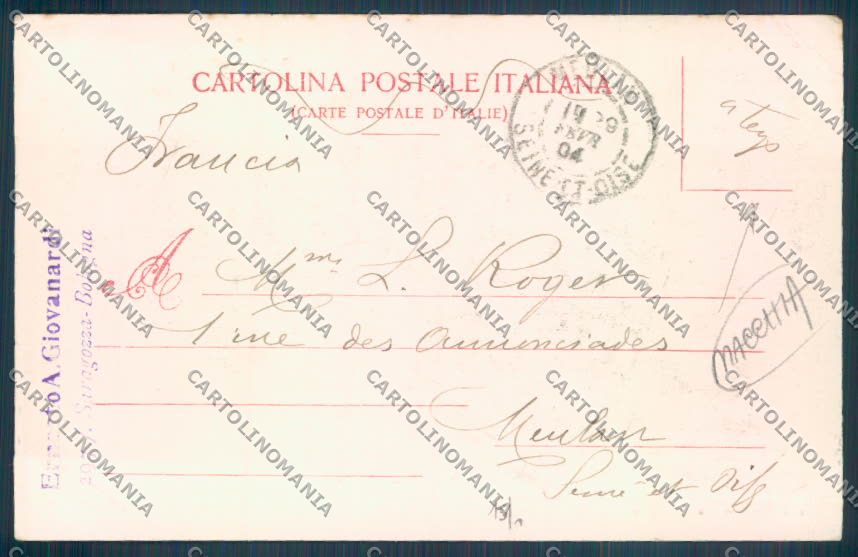 CARTOLINA POSTALE ITALIANA
(CARTE POSTALE D'ITALIE)
Francia
19
FEVR
04
SEINE-ET-OISE
A
Mme L. Roger
1 rue des Annonciades
Meulan
Seine et Oise
MACCHIA
A. Giovanardi
Saragozza-Bologna
CARTOLINOMANIA